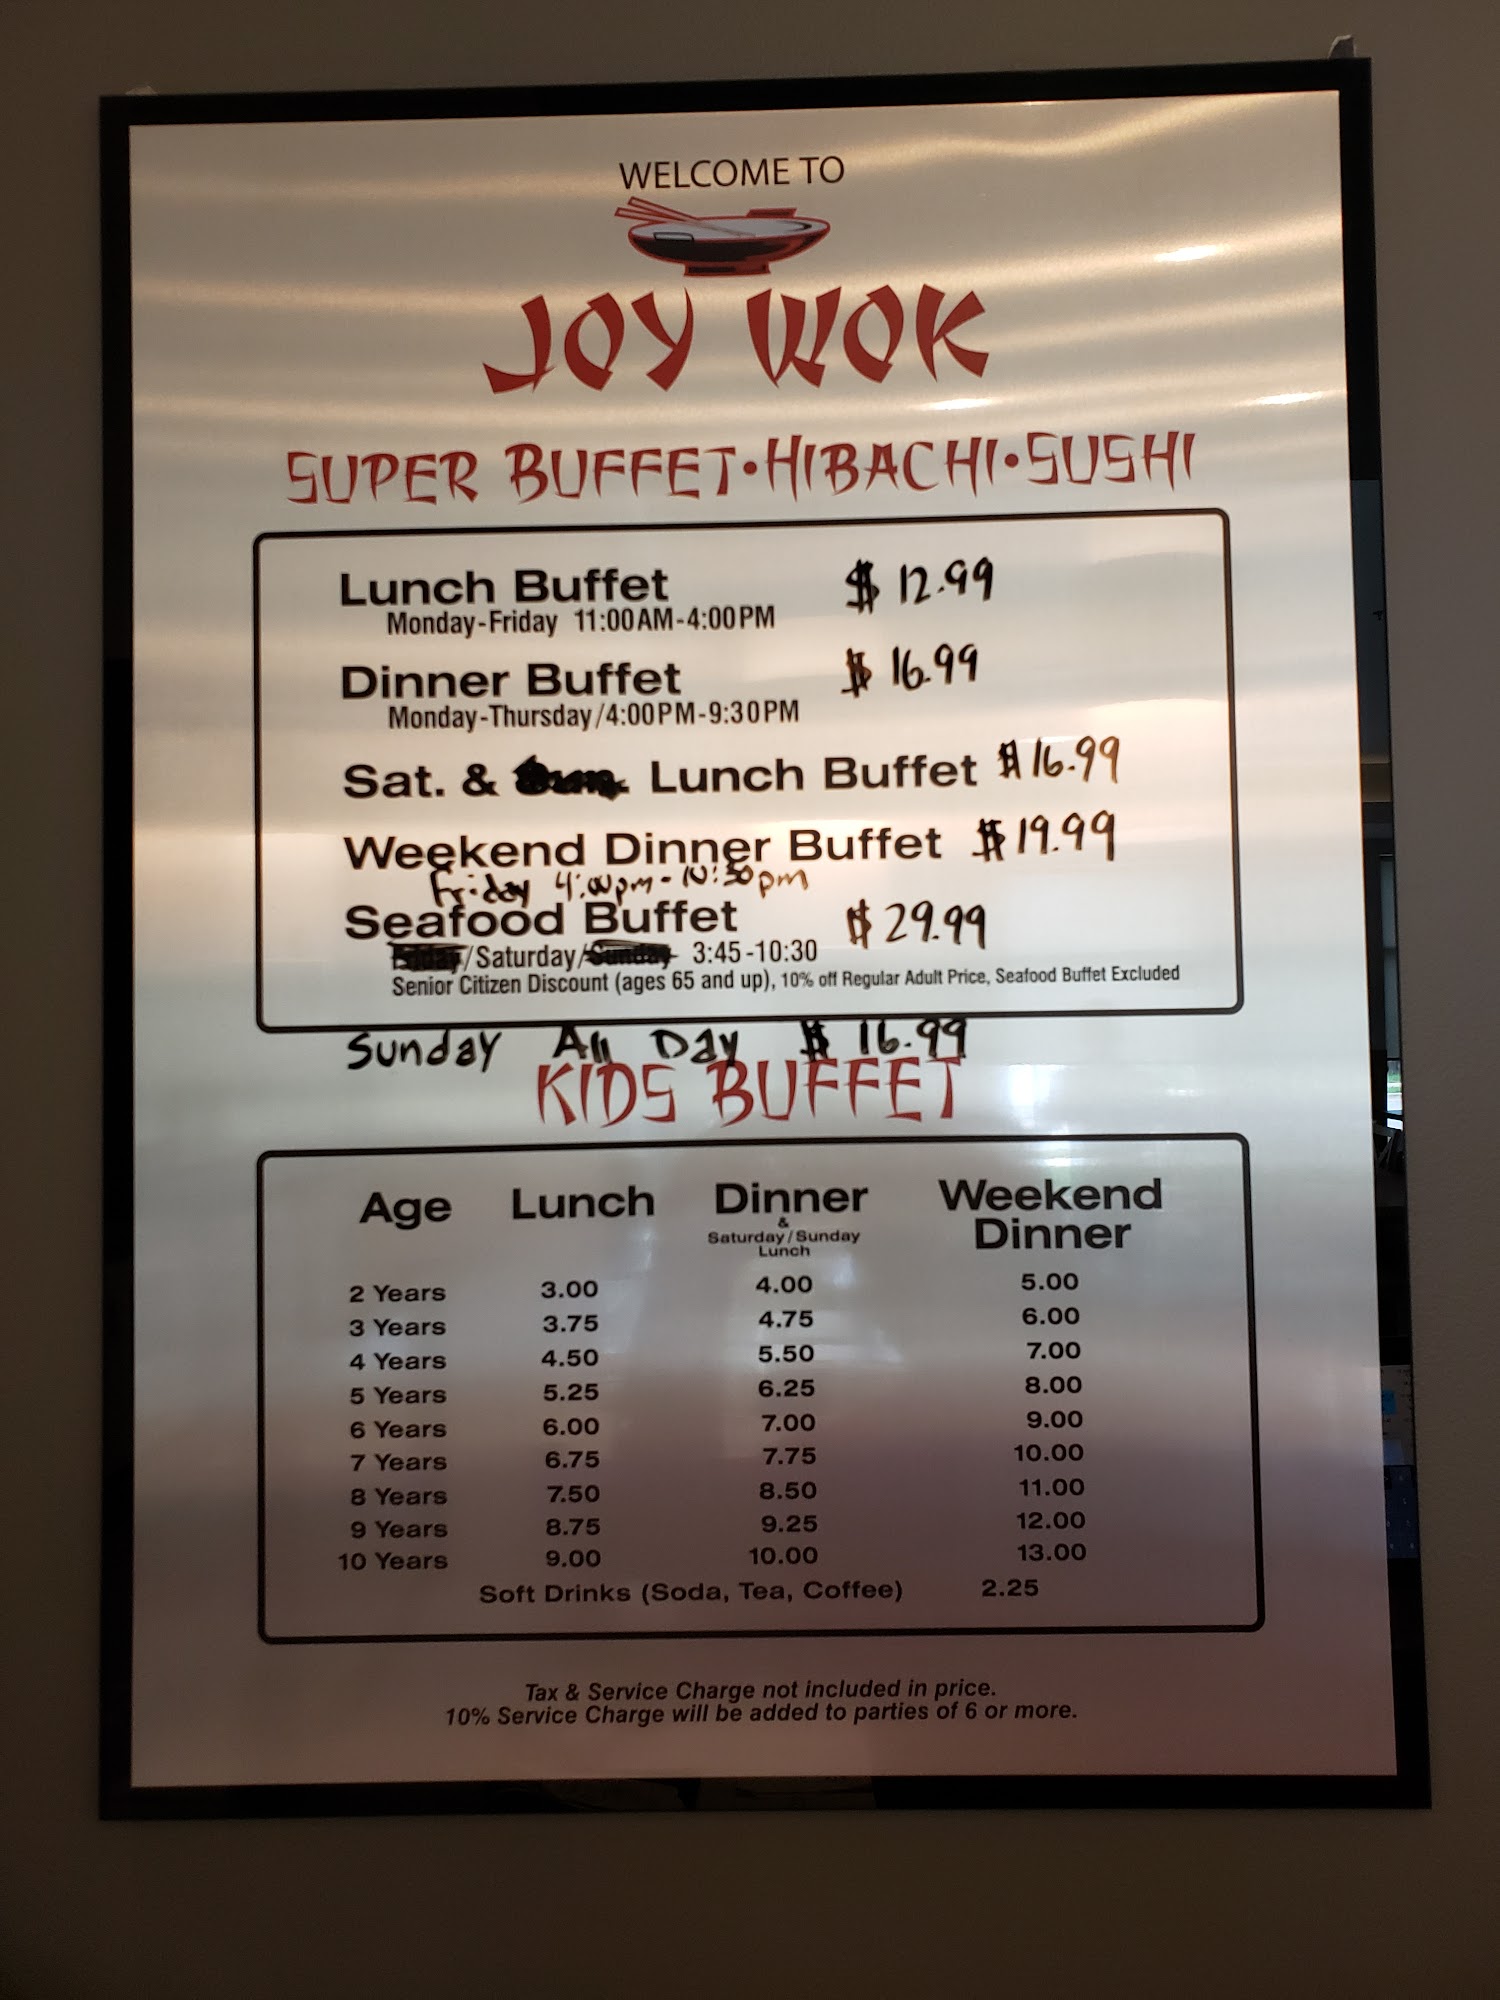 WELCOME TO
JOY WOK
SUPER BUFFET•HIBACHI•SUSHI
Lunch Buffet $ 12.99
Monday-Friday 11:00AM-4:00PM
Dinner Buffet $ 16.99
Monday-Thursday/4:00PM-9:30PM
Sat. & Lunch Buffet $16.99
Weekend Dinner Buffet $19.99
Friday 4:00pm-10:30pm
Seafood Buffet $29.99
Friday/Saturday/Sunday 3:45-10:30
Senior Citizen Discount (ages 65 and up), 10% off Regular Adult Price, Seafood Buffet Excluded
Sunday All Day $ 16.99
KIDS BUFFET
Age Lunch Dinner & Saturday/Sunday Lunch Weekend Dinner
2 Years 3.00 4.00 5.00
3 Years 3.75 4.75 6.00
4 Years 4.50 5.50 7.00
5 Years 5.25 6.25 8.00
6 Years 6.00 7.00 9.00
7 Years 6.75 7.75 10.00
8 Years 7.50 8.50 11.00
9 Years 8.75 9.25 12.00
10 Years 9.00 10.00 13.00
Soft Drinks (Soda, Tea, Coffee) 2.25
Tax & Service Charge not included in price.
10% Service Charge will be added to parties of 6 or more.